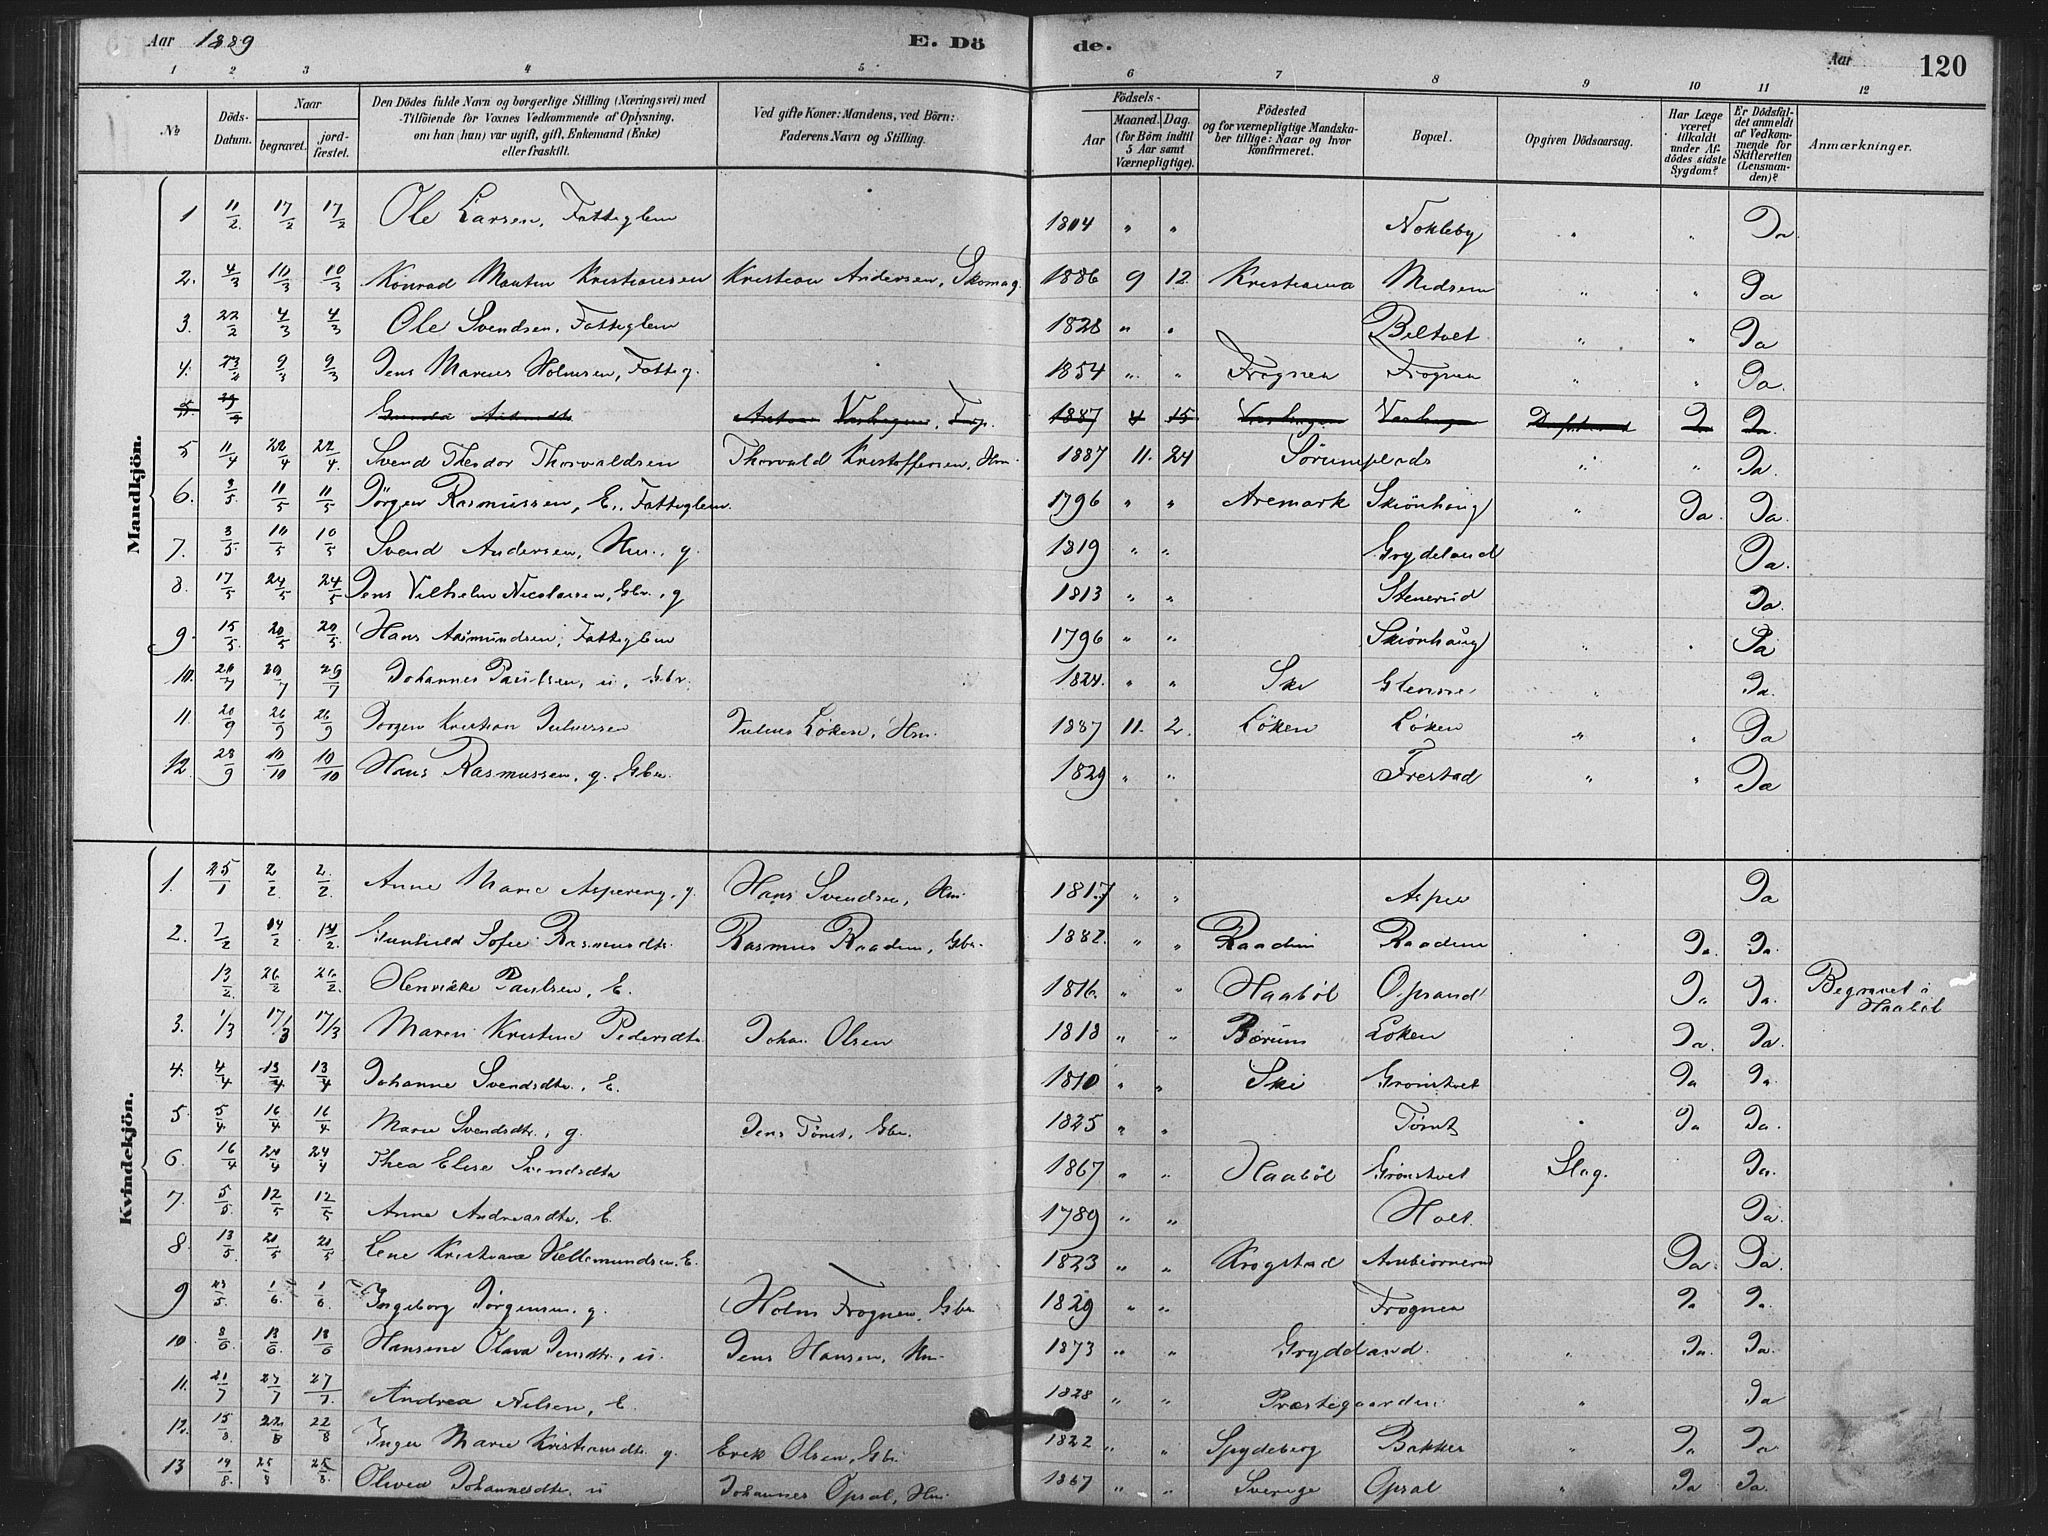 Aar 1889 E. Döde. Aar 120
1 2 3 4 5 6 7 8 9 10 11 12
№ Döds-Datum. Naar begravet. jordfæstet. Den Dödes fulde Navn og borgerlige Stilling (Næringsvei) med Tilföiende for Voxnes Vedkommende af Oplysning, om han (hun) var ugift, gift, Enkemand (Enke) eller fraskilt. Ved gifte Koner: Mandens, ved Börn: Faderens Navn og Stilling. Födsels- Aar Maaned. Dag. (for Börn indtil 5 Aar samt Værnepligtige). Födested og for værnepligtige Mandskaber tillige: Naar og hvor konfirmeret. Bopæl. Opgiven Dödsaarsag. Har Læge været tilkaldt under Afdödes sidste Sygdom? Er Dödsfaldet anmeldt af Vedkommende for Skifteretten (Lensmanden)? Anmærkninger.
Mandkjön.
1 11/2 17/2 17/2 Ole Larsen, Fattiglem 1804 " " Nokleby " " Ja
2. 4/3 10/3 10/3 Konrad Martin Kristiansen Kristian Andersen, Skomag. 1886 9 12 Kristiania Midsem " " Ja
3. 22/2 4/3 4/3 Ole Svendsen, Fattiglem 1828 " " Biltvet " " Ja
4. 23/2 9/3 9/3 Jens Marius Holmsen, Fattig. 1854 " " Frognen Frognen " " Ja.
5. 1887 4 15 Ja Ja
5 11/4 22/4 22/4 Svend Theodor Thorvaldsen Thorvald Kristoffersen, Hm. 1887 11. 24 Sörumplads " " Ja.
6. 3/5 11/5 11/5 Jörgen Rasmussen, E., Fattiglem. 1796 " " Aremark Skiönhaug " Ja. Ja.
7. 3/5 10/5 10/5 Svend Andersen, Hm., g. 1819 " " Grydeland Ja.
8. 17/5 24/5 24/5 Jens Vilhelm Nicolaisen, Gbr., g 1813 " " Stenerud Ja.
9. 15/5 20/5 20/5 Hans Asmundsen, Fattiglem 1796 " " Skiönhaug " " Ja
10. 20/7 29/7 29/7 Johannes Paulsen, u., Gbr. 1824. " " Ski Glenne " Ja.
11 20/9 26/9 26/9 Jörgen Kristian Juliussen Julius Löken, Hm. 1887 11. 2. Löken Löken " " Ja
12. 28/9 10/10 10/10 Hans Rasmussen, g. Gbr. 1829 " " Frestad " " Ja
Kvindekjön.
1. 25/1 2/2 2/2. Anne Marie Aspereng, g. Hans Svendsen, Hm. 1817 " " Asper Ja
2. 7/2 14/2 14/2. Gunhild Sofie Rasmusdtr. Rasmus Raaden, Gbr. 1882. " " Raaden Raaden Ja. Ja.
13/2. 26/2 26/2. Henrikke Paulsen, E. 1816. " " Haaböl Opsand Ja Ja. Begravet i Haaböl
3. 1/3 17/3 17/3 Maren Kristine Pedersdtr. Johan Olsen 1818 " " Bærum Löken Ja. Ja.
4. 4/4 13/4 13/4 Johanne Svendsdtr., E. 1810 " " Ski Grönstvet Ja Ja.
5 5/4 16/4 16/4 Marie Svendsdtr., g. Jens Tömt, Gbr. 1825 " " Tömt Ja Ja.
6. 16/4 24/4 24/4 Thea Elise Svendsdtr 1867 " " Haaböl Grönstvet Slag. Ja.
7. 5/5 12/5 12/5 Anne Andreasdtr, E. 1789 " " Holt. Ja.
8. 13/5. 21/5 21/5 Lene Kristiane Hellemundsen. E. 1823 " " Krogstad Anbiörnerud Ja. Ja.
9 23/5 1/6. 1/6. Ingeborg Jörgensen, g. Holm Frognen, Gbr. 1829 " " Frognen Ja Ja.
10 8/6 13/6 13/6 Hansene Olava Jensdtr., u. Jens Hansen, Hm. 1873 " " Grydeland. " Ja. Ja.
11. 21/7 27/7 27/7. Andrea Nilsen, E. 1828 " " Præstegaarden " Ja
12. 15/8 22/8 22/8 Inger Marie Kristiansdtr. g. Erik Olsen, Gbr. 1822 " " Spydeberg Bakker " Ja Ja
13 19/8. 25/8 25/8. Olivea Johannesdtr. u Johannes Opsal, Hm. 1867 " " Sverige Opsal " Ja Ja.